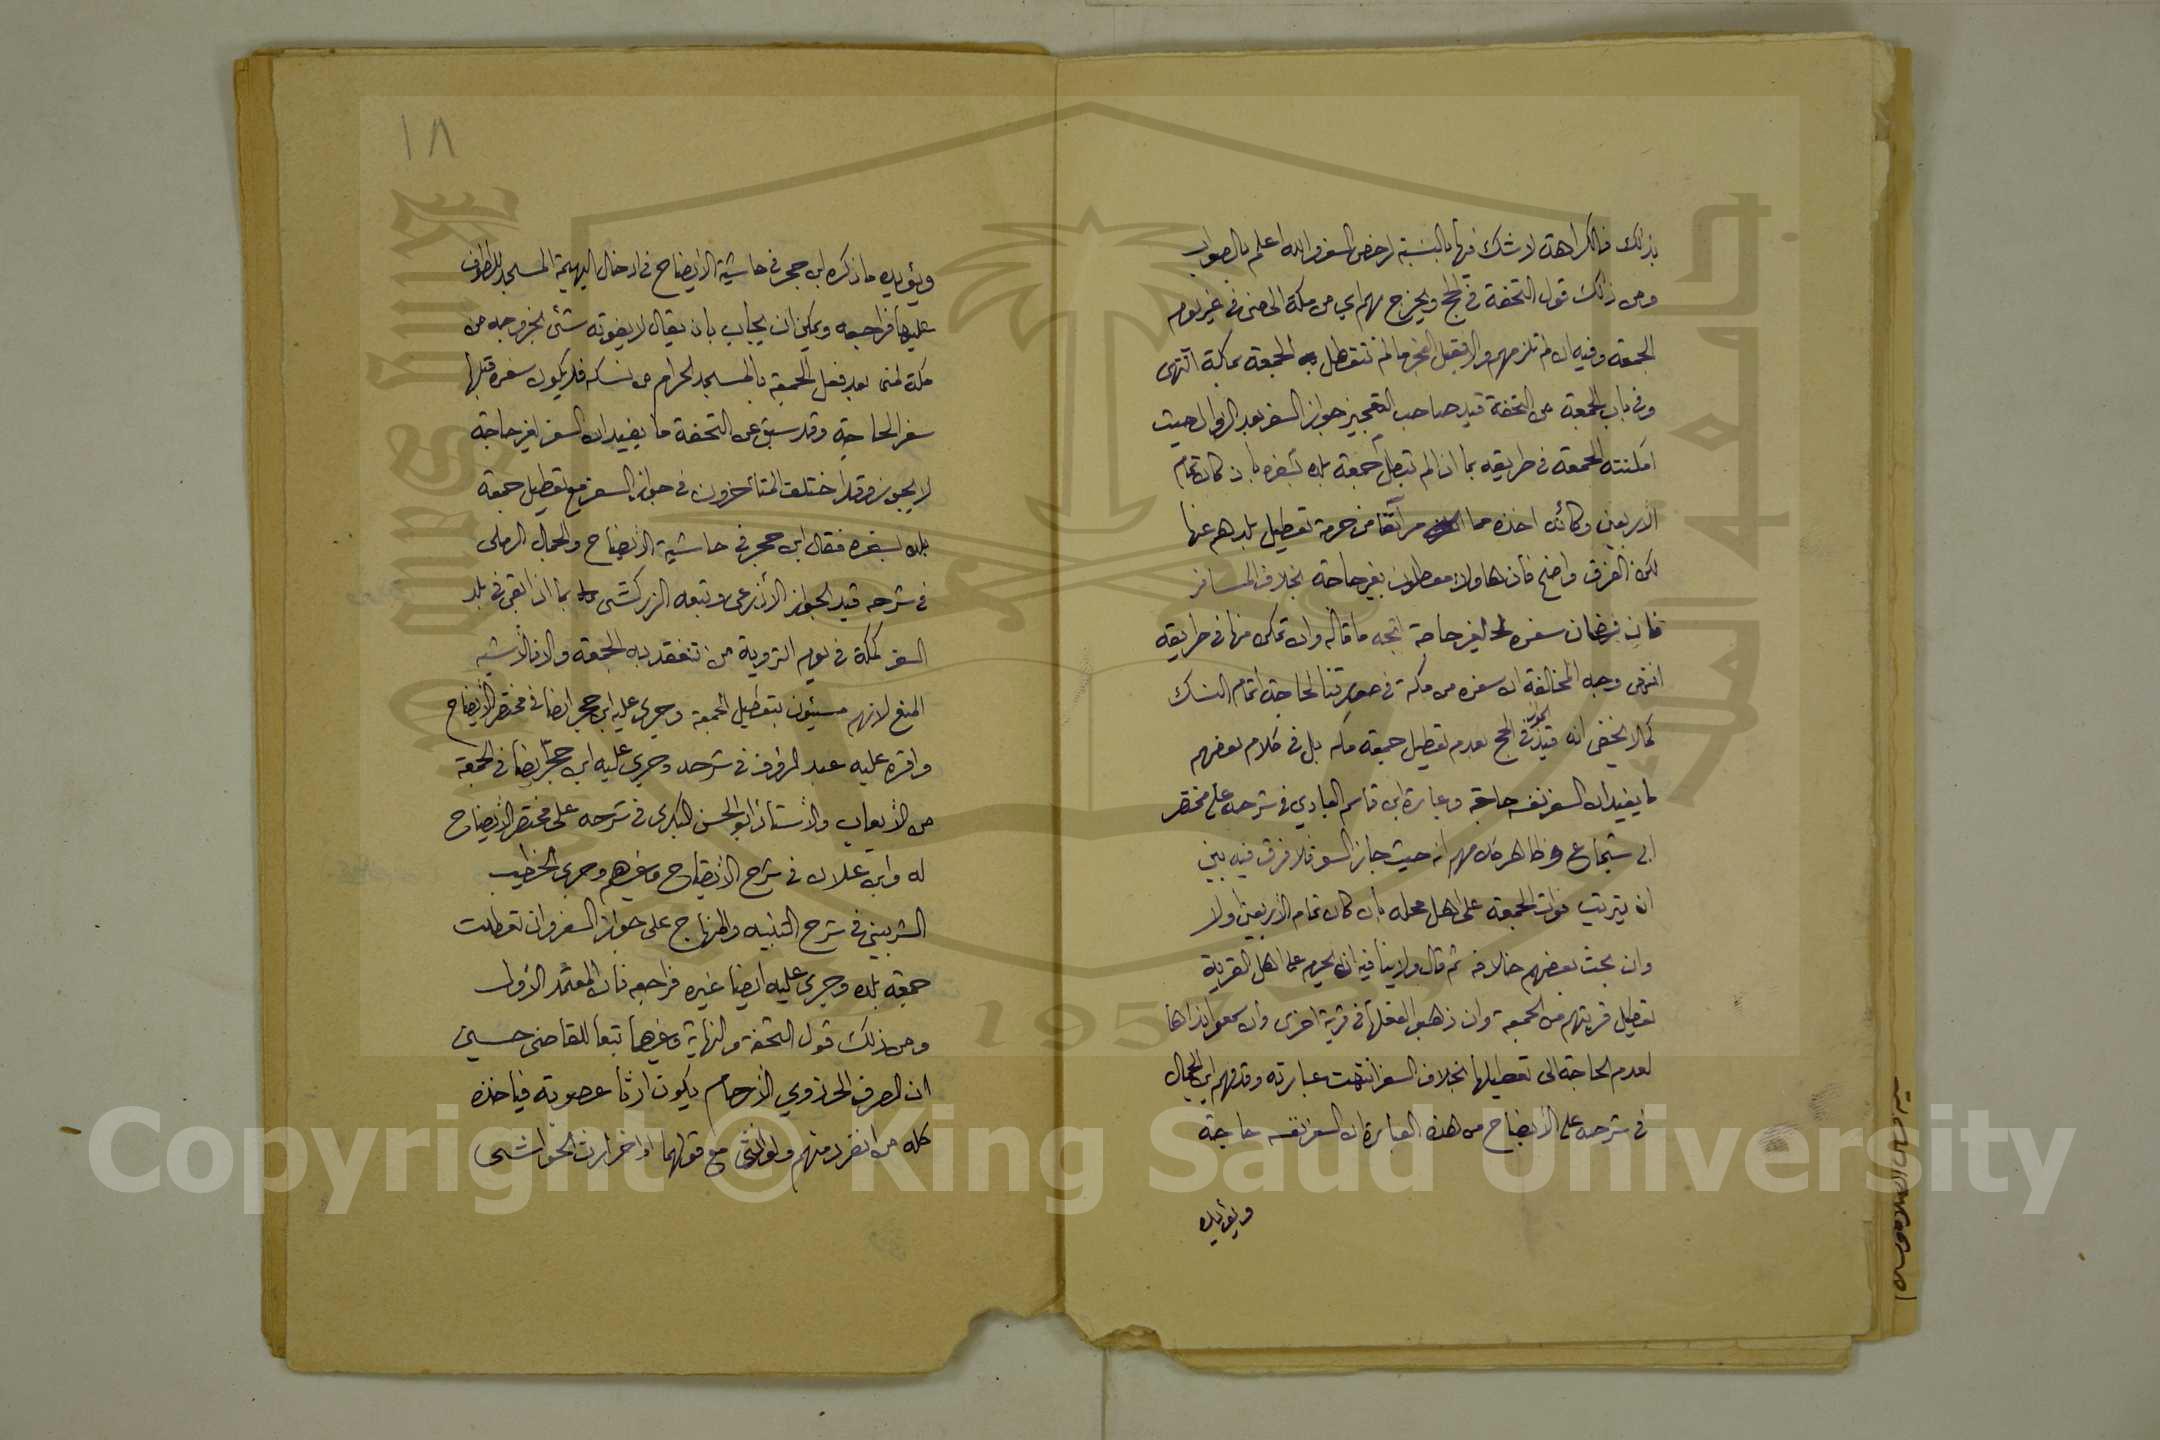 بذلك فالكراهة لا شك فيها بالنسبة لرخص السفر والله اعلم بالصواب
ومن ذلك قول التحفة في الحج ويخرج بهم اي من مكة الى منى في غير يوم
الجمعة وفيه ان لم تلزمهم والا فقبل الفجر ما لم تتعطل الجمعة بمكة انتهى
وفي باب الجمعة من التحفة قيد صاحب التعجيز جواز السفر بعد الزوال حيث
امكنته الجمعة في طريقه بما اذا لم تبطل جمعة بلده بسفره بان كان تمام
الاربعين وكأنه اخذه مما مر آنفا من حرمة تعطيل بلدهم عنها
لكن الفرق واضح فان هاولاء معطلون بغير حاجة بخلاف المسافر
فان فرض ان سفره لغير حاجة اتجه ما قاله وان تمكن منها في طريقه
انتهى وجه المخالفة ان سفره من مكة في صورتنا لحاجة اتمام النسك
كما لا يخفى انه قيد الجواز في الحج بعدم تعطيل جمعة مكة بل في كلام بعضهم
ما يفيد ان السفر نفسه حاجة وعبارة ابن قاسم العبادي في شرحه على مختصر
ابي شجاع وظاهر كلامهم انه حيث جاز السفر فلا فرق فيه بين
ان يترتب فوات الجمعة على اهل محله بان كان تمام الاربعين اولا
وان بحث بعضهم خلافه ثم قال ولا ينافيه انه يحرم على اهل القرية
تعطيل قريتهم من الجمعة وان ذهبوا لفعلها في قرية اخرى وان سمعوا نداها
لعدم الحاجة الى تعطيلها بخلاف السفر انتهت عبارته وقد فهم ابن الجمال
في شرحه على الايضاح من هذه العبارة ان السفر نفسه حاجة
ويؤيده
١٨
ويؤيده ما ذكره ابن حجر في حاشية الايضاح في ادخال البهيمة المسجد للطواف
عليها فراجعه ويمكن ان يجاب بان يقال لا يفوته شئ بخروجه من
مكة لمنى بعد فعل الجمعة بالمسجد الحرام من نسكه فلا يكون سفره قبلها
سفر الحاجة وقد سبق عن التحفة ما يفيد ان السفر لغير حاجة
لا يجوز وقد اختلف المتأخرون في جواز السفر مع تعطيل جمعة
بلده بسفره فقال ابن حجر في حاشية الايضاح والجمال الرملي
في شرحه قيد الجواز الاذرعي وتبعه الزركشي بما اذا بقي في بلد
السفر كمكة في يوم التروية من تنعقد به الجمعة والا فالاشبه
المنع لانهم مسيئون بتعطيل الجمعة وجرى عليه ابن حجر ايضا في مختصر الايضاح
واقره عليه عبد الرؤف في شرحه وجرى عليه ابن حجر ايضا في الجمعة
من الايعاب والاستاذ ابو الحسن البكري في شرحه على مختصر الايضاح
له وابن علان في شرح الايضاح وغيرهم وجرى الخطيب
الشربيني في شرح التنبيه والمنهاج على جواز السفر وان تعطلت
جمعة بلده وجرى عليه ايضا غيره فراجعه فان المعتمد الاول
ومن ذلك قول التحفة والنهاية وغيرهما تبعا للقاضي حسين
ان الصرف الى ذوي الارحام يكون ارثا عصوبة فياخذه
كله من انفرد منهم ولو انثى مع قولهما
Copyright © King Saud University
1957